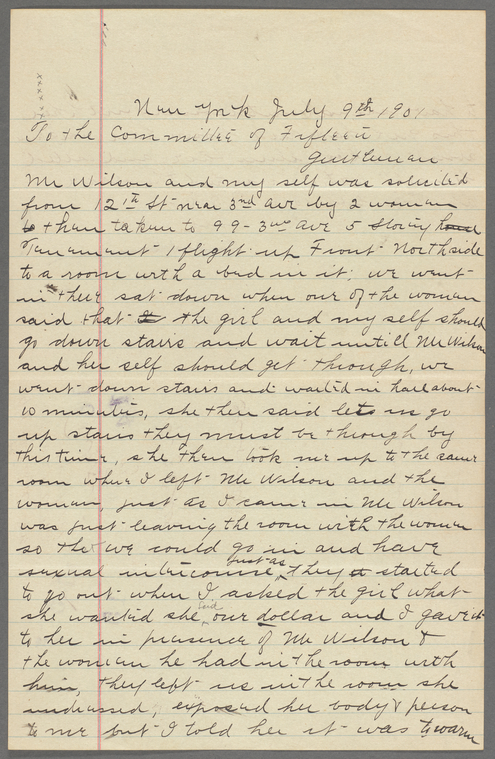 New York July 9th 1901
To the Committee of Fifteen
Gentleman
Mr Wilson and my self was solicited
from 12th St near 3rd Ave by 2 woman
& then taken to 99-3rd Ave 5 Storiy
Tenament 1 flight up Front Northside
to a room with a bed in it; we went
in there sat down when one of the woman
said that the girl and my self should
go down stairs and wait untill Mr Wilson
and her self should get through, we
went down stairs and waited in hall about
10 minuties, she then said lets us go
up stairs they must be through by
this time, she then took me up to the same
room where I left Mr Wilson and the
woman, just as I came in Mr Wilson
was just leaving the room with the woman
so the we could go in and have
sexual intercourse, just as they started
to go out when I asked the girl what
she wanted she said one dollar and I gave it
to her in presence of Mr Wilson &
the woman he had in the room with
him, they left us in the room she
undressed; exposed her body & person
to me but I told her it was to warm